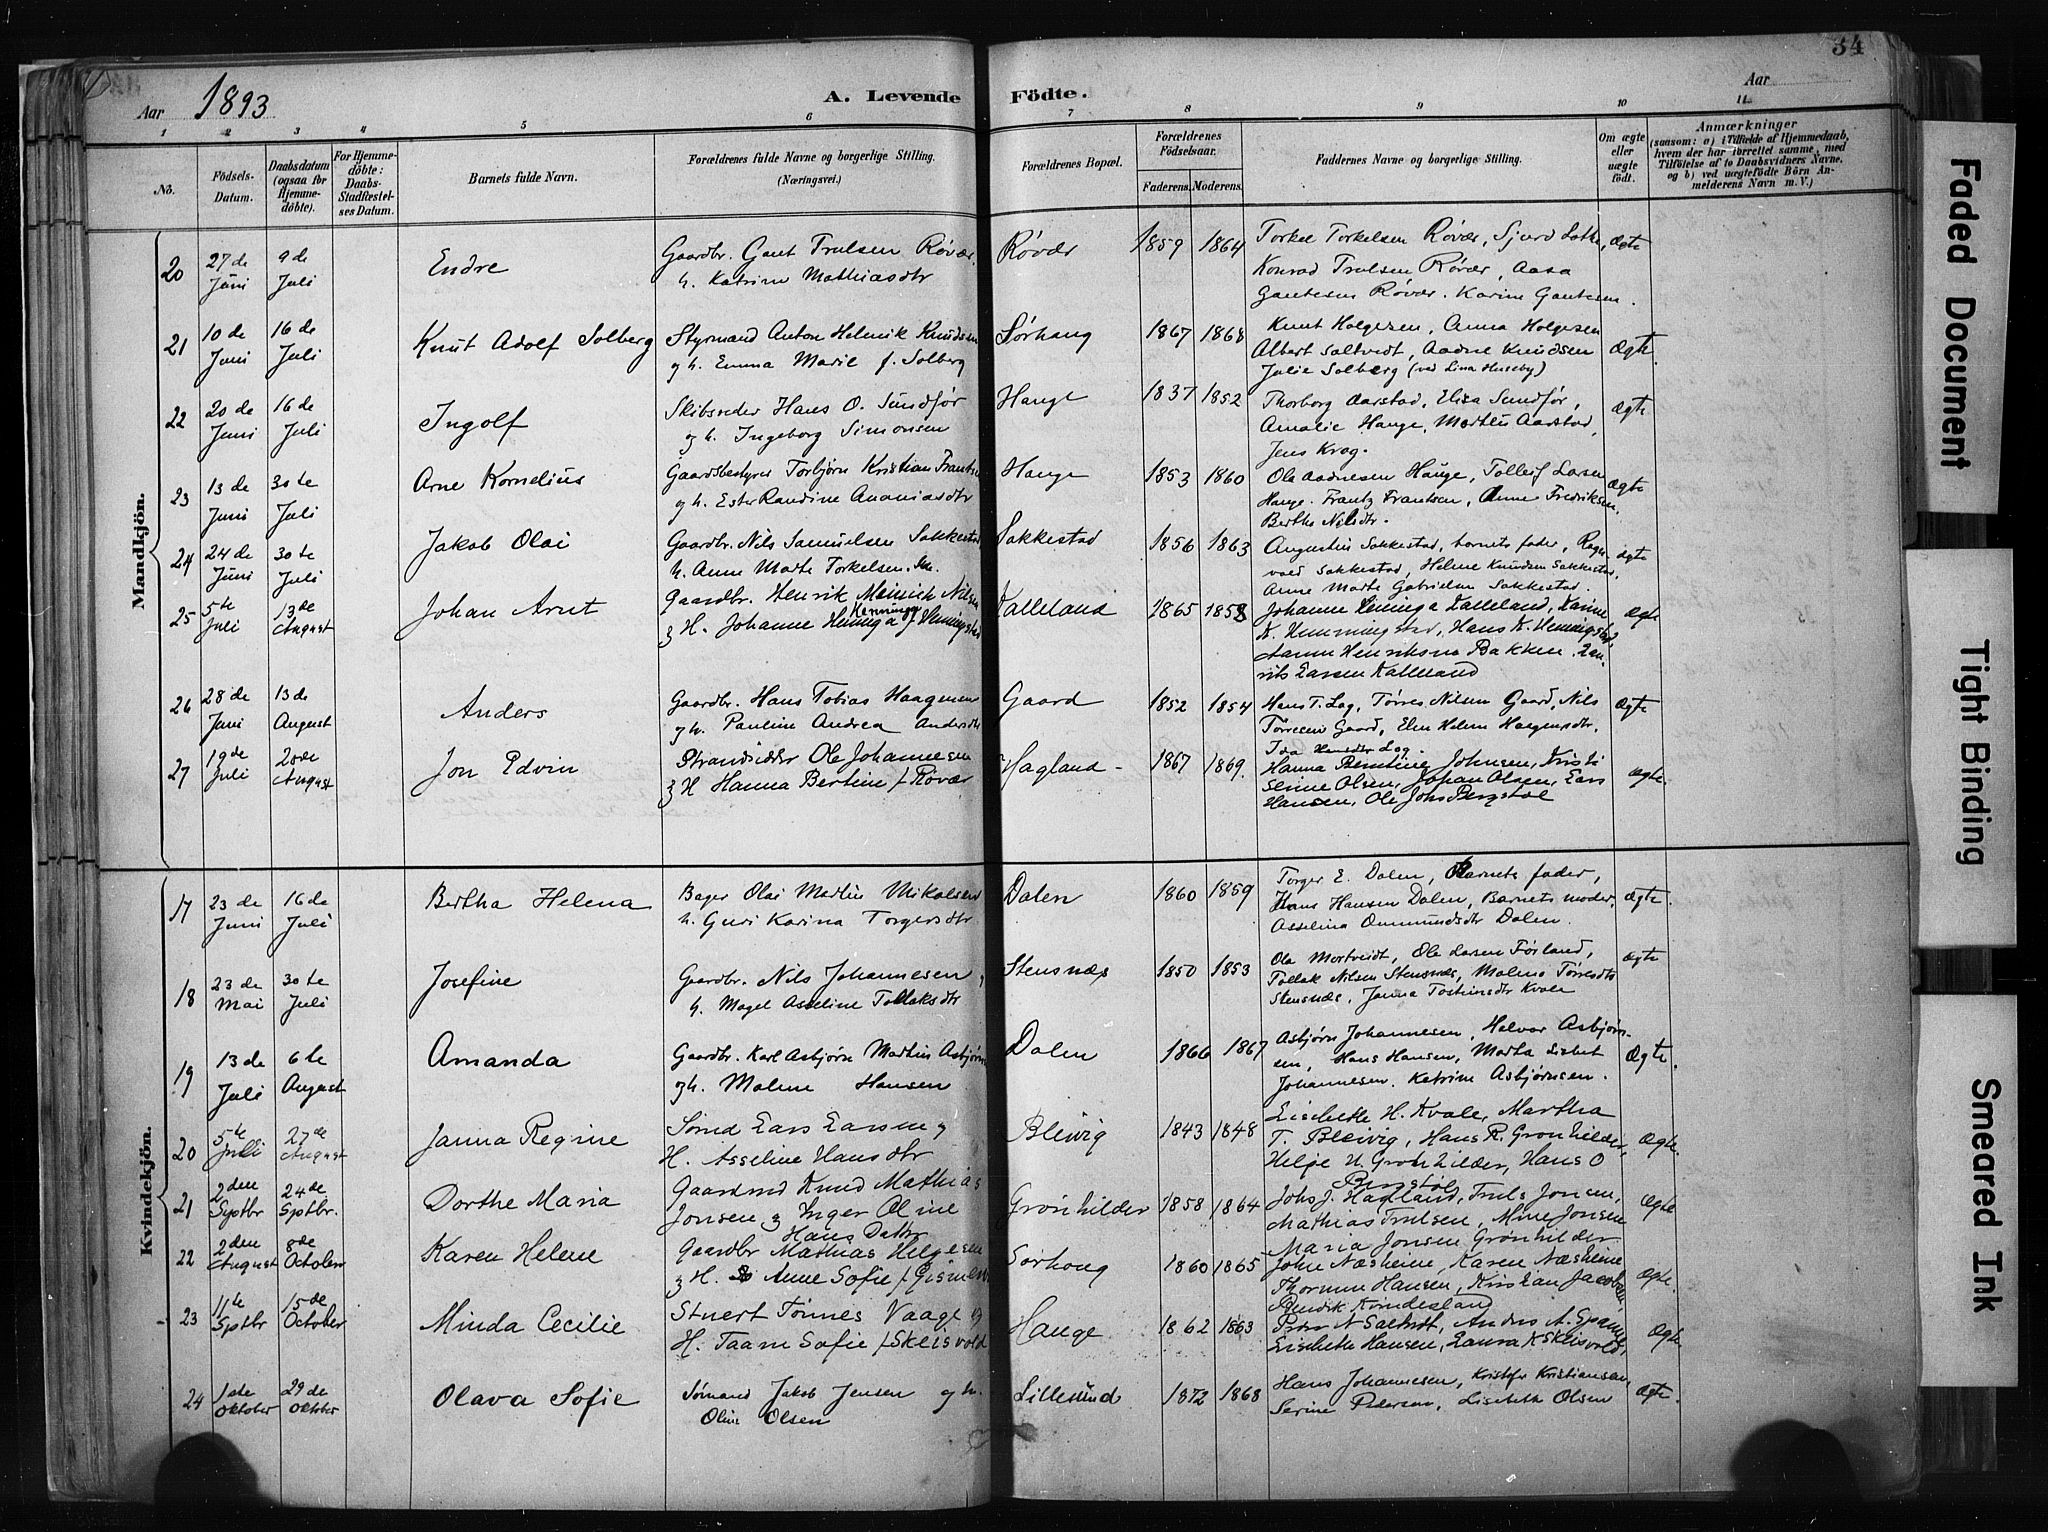 34
Aar 1893
A. Levende Födte.
Aar
1 2 3 4 5 6 7 8 9 10 11.
No.
Födsels-Datum.
Daabsdatum (ogsaa for Hjemme-döbte).
For Hjemme-döbte: Daabs-Stadfæstel-ses Datum.
Barnets fulde Navn.
Forældrenes fulde Navne og borgerlige Stilling.
(Næringsvei.)
Forældrenes Bopæl.
Forældrenes Födselsaar.
Faderens. Moderens.
Faddernes Navne og borgerlige Stilling.
Om ægte eller uægte födt.
Anmærkninger
(saasom: a) i Tilfælde af Hjemmedaab,
hvem der har forrettet samme, med
Tilföielse af to Daabsvidners Navne.
og b) ved uægtefödte Börn An-
melderens Navn m. V.)
Mandkjön.
20 27 de Juni 9 de Juli Endre Gaardbr. Gaut Trulsen Røvær. Røvær 1859 1864 Torkel Torkelsen Røvær, Sjurd Lothe, Ægte
h. Katrine Mathiasdtr Konrad Trulsen Røvær, Aasa
Gautesen Røvær. Karine Gautesen.
21 10 de Juni 16 de Juli Knut Adolf Solberg Styrmand Anton Helmik Knudsen Sørhaug 1867 1868 Knut Holgesen, Anna Holgesen Ægte.
og h. Emma Marie f. Solberg Albert Saltvedt, Aadne Knudsen
Julie Solberg (ved Lina Huseby)
22 20 de Juni 16 de Juli Ingolf Skibsreder Hans O. Sundfør Hauge 1837 1852 Thorborg Aarstad, Elisa Sundfør, Ægte
og h. Ingeborg Simonsen Amalie Hauge, Mathis Aarstad,
Jens Krog.
23 13 de Juni 30 te Juli Arne Kornelius Gaardsbestyrer Torbjørn Kristian Frantsen Hauge 1853 1860 Ole Aadnesen Hauge, Tolleif Larsen Ægte
og h. Ester Randine Ananiasdtr Hauge. Frantz Frantsen, Anne Fredriksen.
Bertha Nilsdtr.
24 24 de Juni 30 te Juli Jakob Olai Gaardbr. Nils Samuelsen Sakkestad Sakkestad 1856 1863 Augustin Sakkestad, barnets fader, Ragn- Ægte
h. Anne Marte Torkelsen. vald Sakkestad, Helene Knudsen Sakkestad,
Anne Marte Gabrielsen Sakkestad.
25 5te Juli 13de August Johan Arnt Gaardbr. Henrik Meinich Nilsen Kalleland 1865 1858 Johanne Kalleland, Karine Ægte
& H. Johanne f. Hemingstad K. Hemmingstad, Hans K. Hemmigstad,
Henriksen Bakken.
Larsen Kalleland
26 28 de Juni 13 de August Anders Gaardbr. Hans Tobias Haagensen Gaard 1852 1854 Hans T. Lag, Tørres Nilsen Gaard, Nils Ægte
og h. Pauline Andrea Andersdtr Tørresen Gaard, Elen Helene Haagensdtr,
Ida Hansdtr Lag.
27 19de Juli 20de August Jon Edvin Strandsidder Ole Johannesen Hagland - 1867 1869. Hanna Berntine Johnsen, Kristi Ægte.
& H Hanna Bertine f. Røvær Serine Olsen, Johan Olsen, Lars
Hansen, Ole Johs Bergstøl
Kvindekjön.
17 23 de Juni 16 de Juli Bertha Helena Bager Olai Martin Mikalsen Dalen 1860 1859 Torger E. Dalen, Barnets fader, Ægte.
h. Guri Karina Torgersdtr. Hans Hansen Dalen, Barnets moder,
Asselina Ommundsdtr Dalen.
18 23 de Mai 30 te Juli Josefine Gaardbr. Nils Johannesen Stensnæs 1850 1853 Ola Mortveidt, Ole Larsen Førland, Ægte
h. Magel Asseline Tollaksdtr Tollak Nilsen Stensnæs, Malene Tørresdtr
Stensnæs, Janna Tostensdtr Kvale
19 13 de Juli 6 te August Amanda Gaardbr. Karl Asbjørn Martin Asbjørn Dalen 1866 1867 Asbjørn Johannesen, Halvor Asbjørn- Ægte.
og h. Malene Hansen sen, Hans Hansen, Marta Lisbet
Johannesen. Katrine Asbjørnsen.
20 5te Juli 27de August Janna Regine Smed Lars Larsen & Bleivig 1843 1848 Lisebethe H. Kvale, Martha Ægte.
H. Asseline Hansdtr T. Bleivig, Hans R. Grønhilder,
Helje N. Grønhilder, Hans O
Bergstøl
21 2den Septbr 24de Sptbr. Dorthe Maria Gaardmd Knud Mathias Grønhilder 1858 1864 Johs J. Hagland, Truls Jonsen, Ægte
Jonsen & Inger Oline Mathias Trulsen, Mine Jonsen
Hans Datter Maria Jonsen Grønhilder
22 2den August 8de October Karen Helene Gaardbr Mathias Helgesen Sørhoug 1860 1865 John Næsheine, Karen Næsheine Ægte.
& H. Anne Sofie f. Thormun Hansen, Kristian Jacobsen,
Bendik
23 11te Sptbr 15de October Minda Cecilie Stuert Tønnes Vaage og Hauge 1862 1863 Peder N Saltvedt, Anders A. Ægte
H. Taam Sofie f Skeisvold Lisebethe Hansen, Laura K Skeisvold,
24 1ste Oktober 29 de Oktober Olava Sofie Sømand Jakob Jensen og h. Lillesund 1872 1868 Hans Johannesen, Kristofer Kristiansen, Ægte.
Oline Olsen Serine Pedersen, Lisebeth Olsen
Faded Document
Tight Binding
Smeared Ink